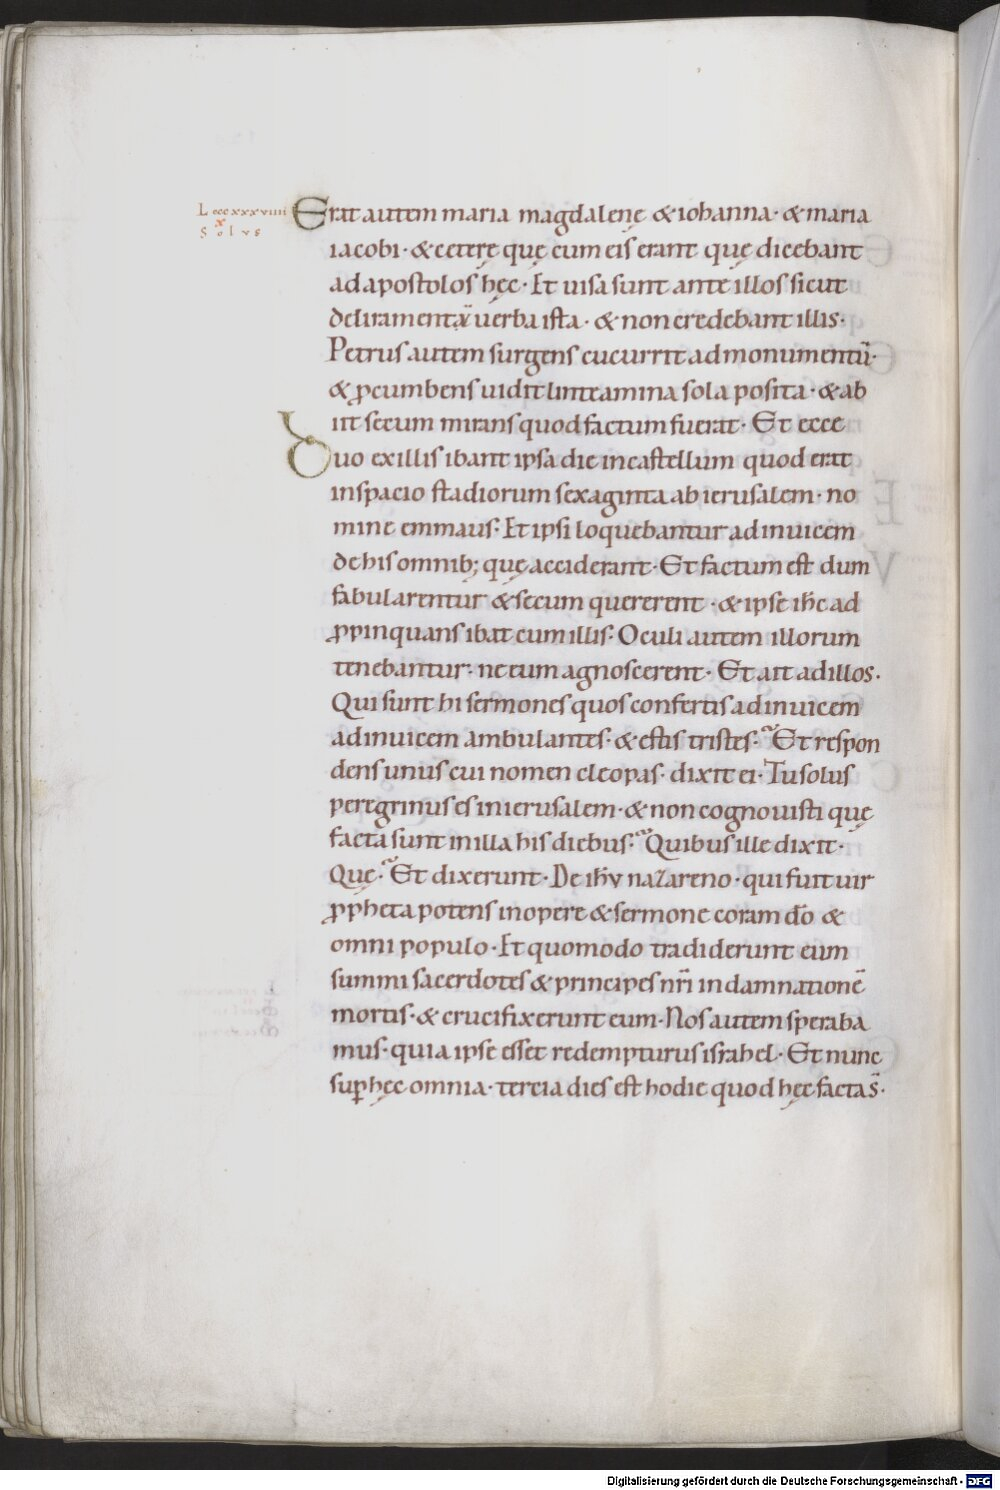 L cccxxxviiii
x
Solus
Erat autem maria magdalenę & iohanna · & maria
iacobi · & ceterę quę cum eis erant quę dicebant
ad apostolos hęc · Et uisa sunt ante illos sicut
deliramenta uerba ista · & non credebant illis ·
Petrus autem surgens cucurrit ad monumentū ·
& ꝓcumbens uidit linteamina sola posita · & ab
iit secum mirans quod factum fuerat · Et ecce
Duo ex illis ibant ipsa die in castellum quod erat
in spacio stadiorum sexaginta ab ierusalem · no
mine emmaus · Et ipsi loquebantur ad inuicem
de his omnib; quę acciderant · Et factum est dum
fabularentur & secum quererent · & ipse ihc̄ ad
ꝓpinquans ibat cum illis · Oculi autem illorum
tenebantur · ne eum agnoscerent · Et ait ad illos ·
Qui sunt hi sermones quos confertis ad inuicem
ad inuicem ambulantes · & estis tristes · Et respon
dens unus cui nomen cleopas · dixit ei · Tu solus
peregrinus es in ierusalem · & non cognouisti quę
facta sunt in illa his diebus · Quibus ille dixit ·
Quę · Et dixerunt · De ihū nazareno · qui fuit uir
ꝓpheta potens in opere & sermone coram dō &
omni populo · Et quomodo tradiderunt eum
summi sacerdotes & principes nr̄i in damnationē
mortis · & crucifixerunt eum · Nos autem speraba
mus · quia ipse esset redempturus israhel · Et nunc
sup̄ hęc omnia · tercia dies est hodie quod hęc facta s̄ ·
Digitalisierung gefördert durch die Deutsche Forschungsgemeinschaft - DFG